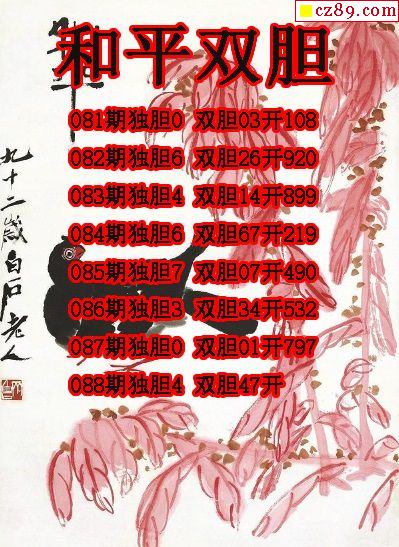 cz89.com
和平双胆
081期独胆0 双胆03开108
082期独胆6 双胆26开920
083期独胆4 双胆14开899
084期独胆6 双胆67开219
085期独胆7 双胆07开490
086期独胆3 双胆34开532
087期独胆0 双胆01开797
088期独胆4 双胆47开
九十二岁白石老人